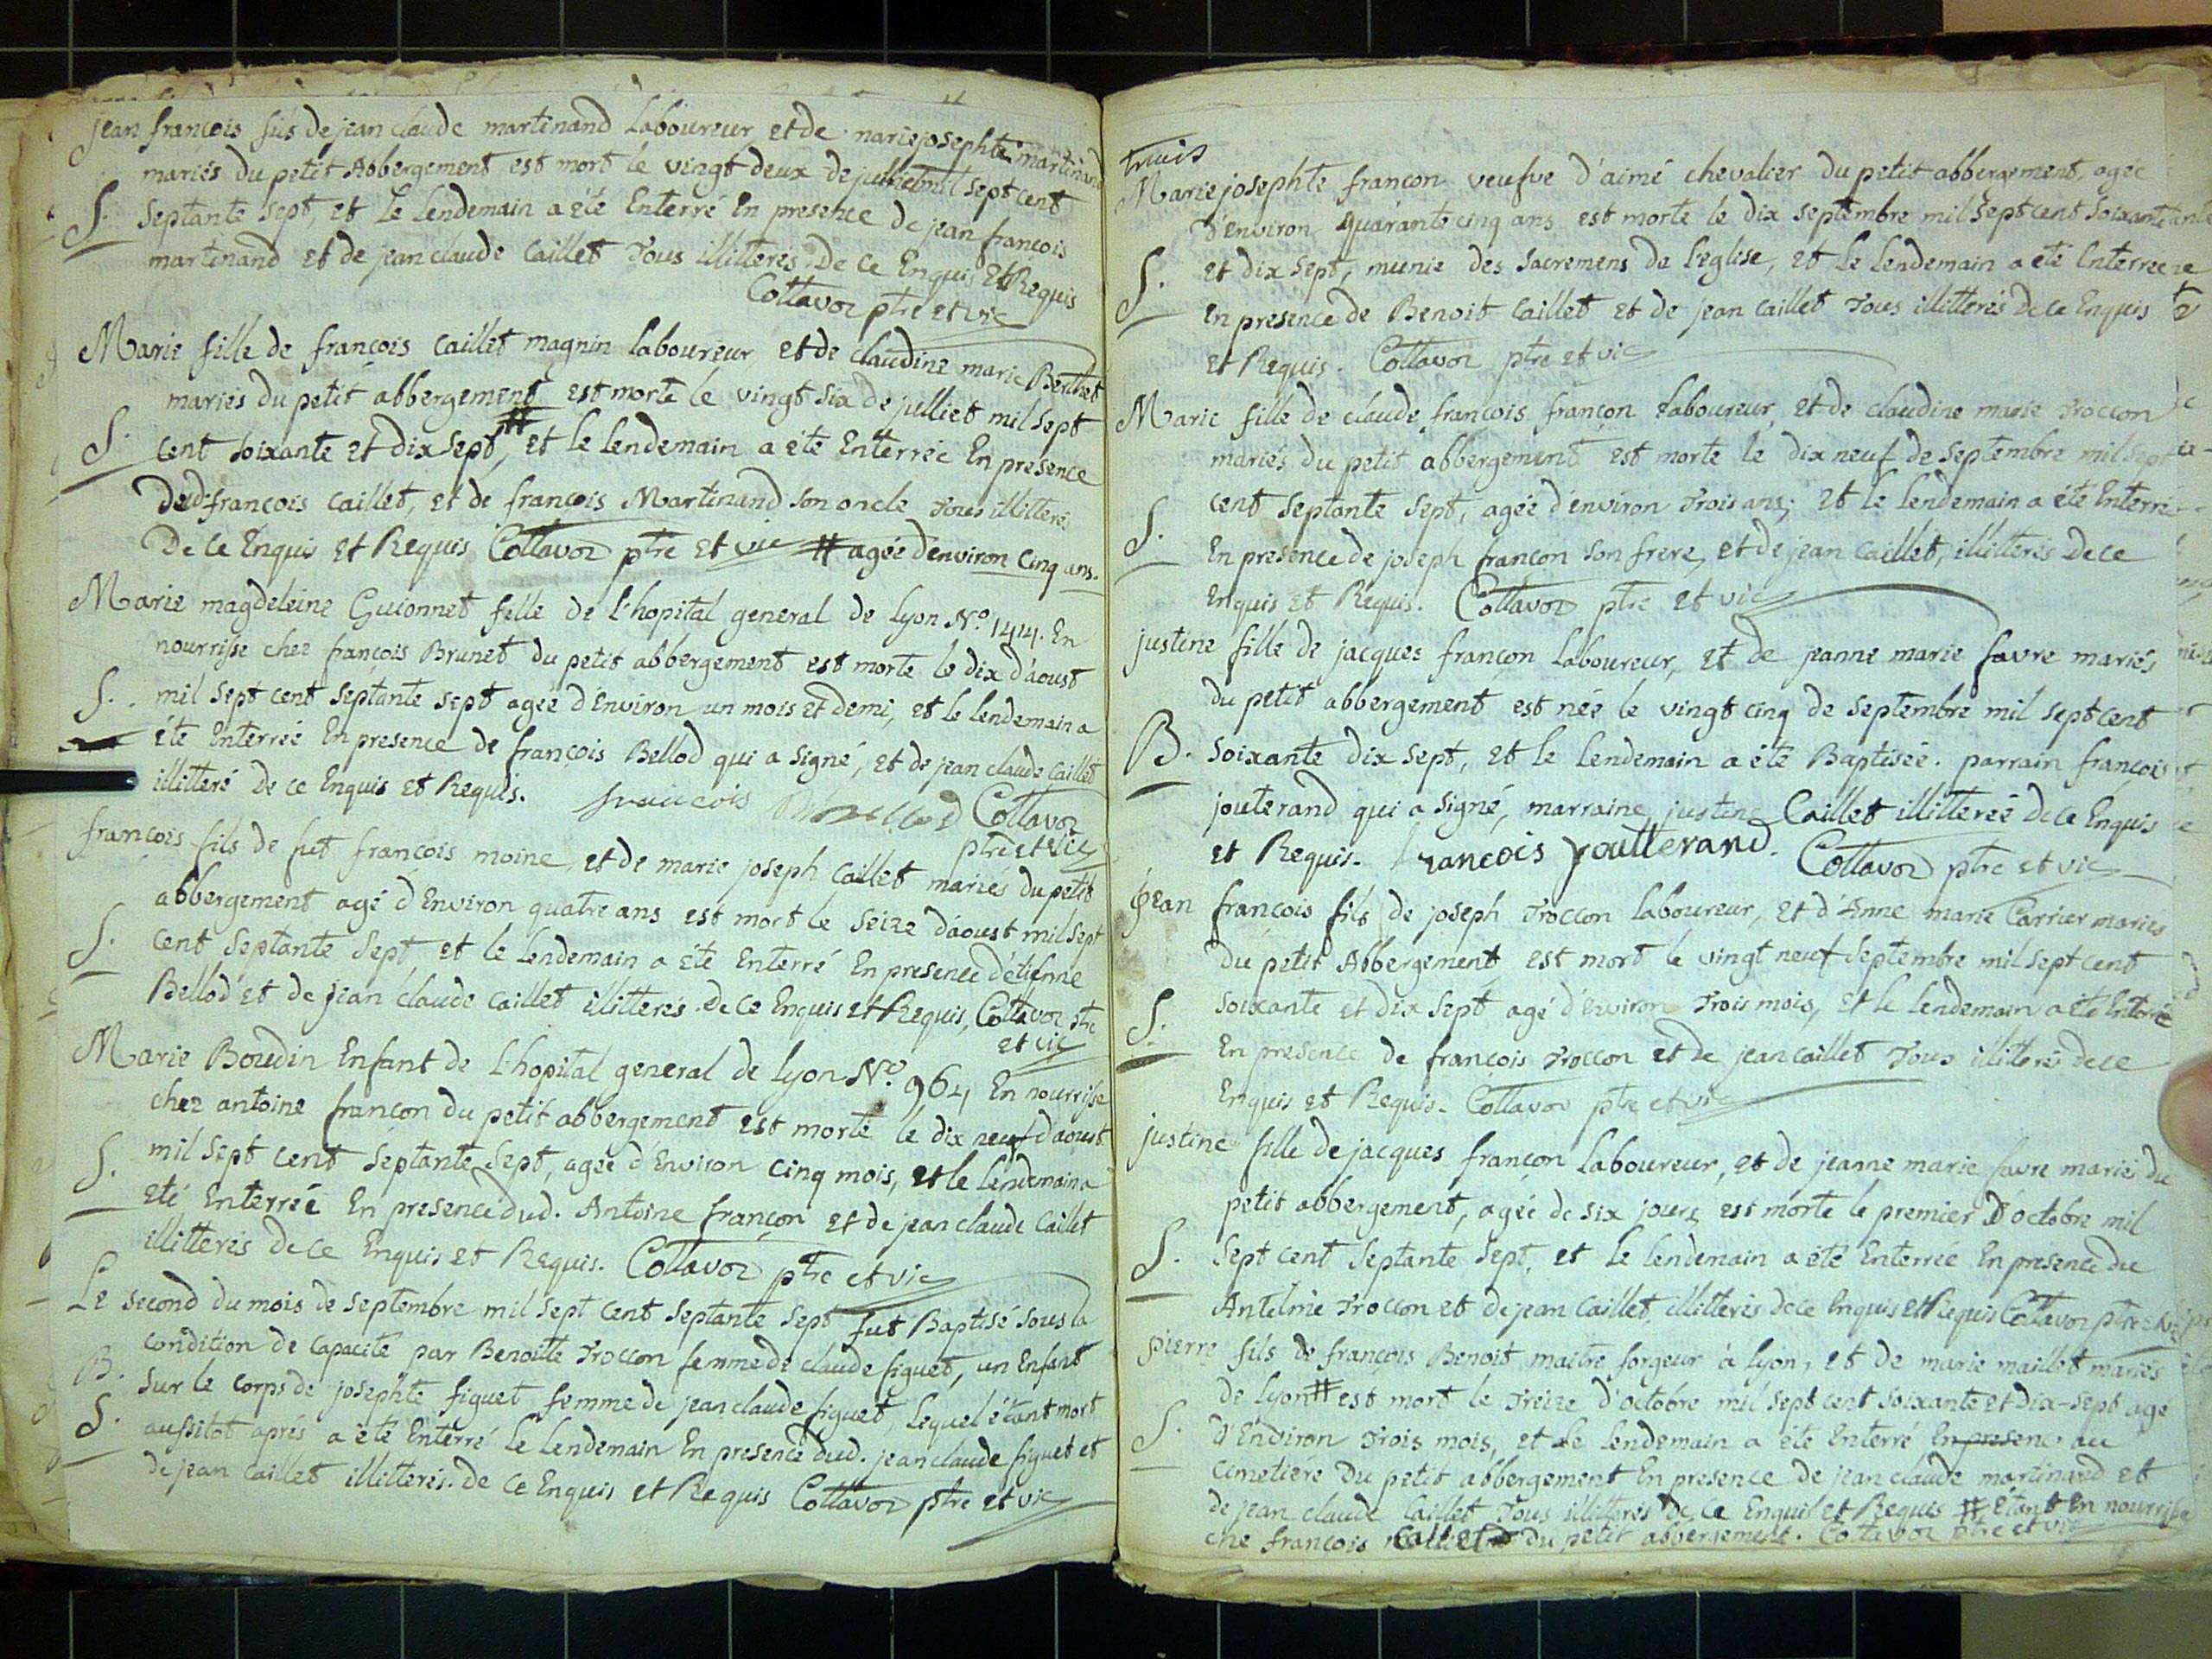 jean françois fils de jean claude martinand Laboureur et de mariejosephte martinand
mariés du petit Abbergement est mort le vingt deux de julliet mil sept cent
S. Septante Sept, et Le Lendemain a été Enterré En presence de jean françois
martinand et de jean claude Caillet Tous illitterés De Ce Enquis Et Requis
Collavoz ptre et vic
Marie fille de françois Caillet magnin laboureur, et de claudine marie Berthet
mariés du petit abbergement est morte le vingt six de julliet mil sept
S. cent soixante et dix sept, # et le lendemain a été Enterrée En presence
dud françois Caillet, et de françois Martinand son oncle Tous illitterés
De Ce Enquis et Requis Collavoz ptre et vic # agée d'environ cinq ans.
Marie magdeleine Guionnet fille de l'hopital general de Lyon No. 1414. En
nourrisse chez françois Brunet du petit abbergement est morte le dix d'aoust
S. mil sept cent septante sept agée d'Environ un mois et demi, et le lendemain a
été Enterrée En presence de françois Bellod qui a signé, et de jean claude Caillet
illitteré de ce Enquis et Requis. francois Bellod Collavoz
ptre et vic
françois fils de fut françois moine, et de marie joseph Caillet mariés du petit
abbergement agé d'Environ quatre ans est mort le seize d'aoust mil sept
S. cent septante sept et le lendemain a été Enterré En presence d'etienne
Bellod et de jean claude Caillet illitterés. de ce Enquis et Requis, Collavoz ptre
et vic
Marie Boudin Enfant de l'hopital general de Lyon No. 964 En nourrisse
chez antoine françon du petit abbergement est morte le dix neuf d'aoust
S. mil sept cent septante sept, agée d'Environ cinq mois, et le lendemain a
eté Enterrée En presence dud. Antoine françon et de jean claude Caillet
illitterés de ce Enquis et Requis. Collavoz ptre et vic
Le second du mois de septembre mil sept cent septante sept fut Baptisé sous la
condition de capacité par Benoite Troccon femme de claude figuet, un Enfant
B. sur le corps de josephte figuet femme de jean claude figuet Lequel étant mort
S. aussitot aprés a été Enterré Le Lendemain En presence dud. jean claude figuet et
de jean Caillet illitterés. de Ce Enquis et Requis Collavoz ptre et vic
Marie josephte françon veufve d'aimé chevalier du petit abbergement, agée
d'Environ quarante cinq ans est morte le dix septembre mil sept cent soixante
S. et dix sept, munie des sacremens de l'eglise, et Le Lendemain a été Enterrée
En presence de Benoit Caillet et de jean Caillet Tous illitterés de ce Enquis
et Requis. Collavoz ptre et vic
Marie fille de claude françois françon Laboureur et de claudine marie Troccon
mariés du petit abbergement est morte le dix neuf de septembre mil sept
cent septante sept, agée d'environ Trois ans; et le lendemain a été Enterré
S. En presence de joseph françon son frere, et de jean Caillet, illitterés de ce
Enquis et Requis. Collavoz ptre et vic
justine fille de jacques françon Laboureur, et de jeanne marie favre mariés
du petit abbergement est née le vingt cinq de septembre mil sept cent
B. soixante dix sept, et le lendemain a été Baptisée. parrain françois
jouterand qui a signé, marraine justine Caillet illitterée de ce Enquis
et Requis. francois joutterand. Collavoz ptre et vic
jean françois fils de joseph Troccon laboureur, et d'Anne marie Carrier mariés
du petit Abbergement est mort le vingt neuf septembre mil sept cent
S. soixante et dix sept agé d'Environ Trois mois, et le lendemain a été Enterré
En presence de françois Troccon et de jean Caillet Tous illiterés de ce
Enquis et Requis. Collavoz ptre et vic
justine fille de jacques françon Laboureur, et de jeanne marie favre mariés du
petit abbergement, agée de six jours est morte le premier d'octobre mil
S. sept cent septante sept, et Le lendemain a été Enterrée En presence du
Antelme Troccon et de jean Caillet, illitterés de ce Enquis et Requis Collavoz ptre et vic
pierre fils de françois Benoit maitre forgeur à Lyon, et de marie maillet mariés
de Lyon # est mort le Treize d'octobre mil sept cent soixante et dix-sept agé
S. d'Environ Trois mois, et Le lendemain a été Enterré En presence au
cimetiére du petit abbergement En presence de jean claude martinand et
de jean claude Caillet Tous illitterés de Ce Enquis et Requis # étant En nourrisse
ché françois Caillet du petit abbergement. Collavoz ptre et vic